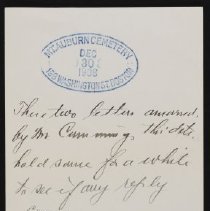 MT. AUBURN CEMETERY
DEC
30
1938
WASHINGTON ST BOSTON
These two letters answered
by Mr Cummings this date
hold same for a while
to see if any reply